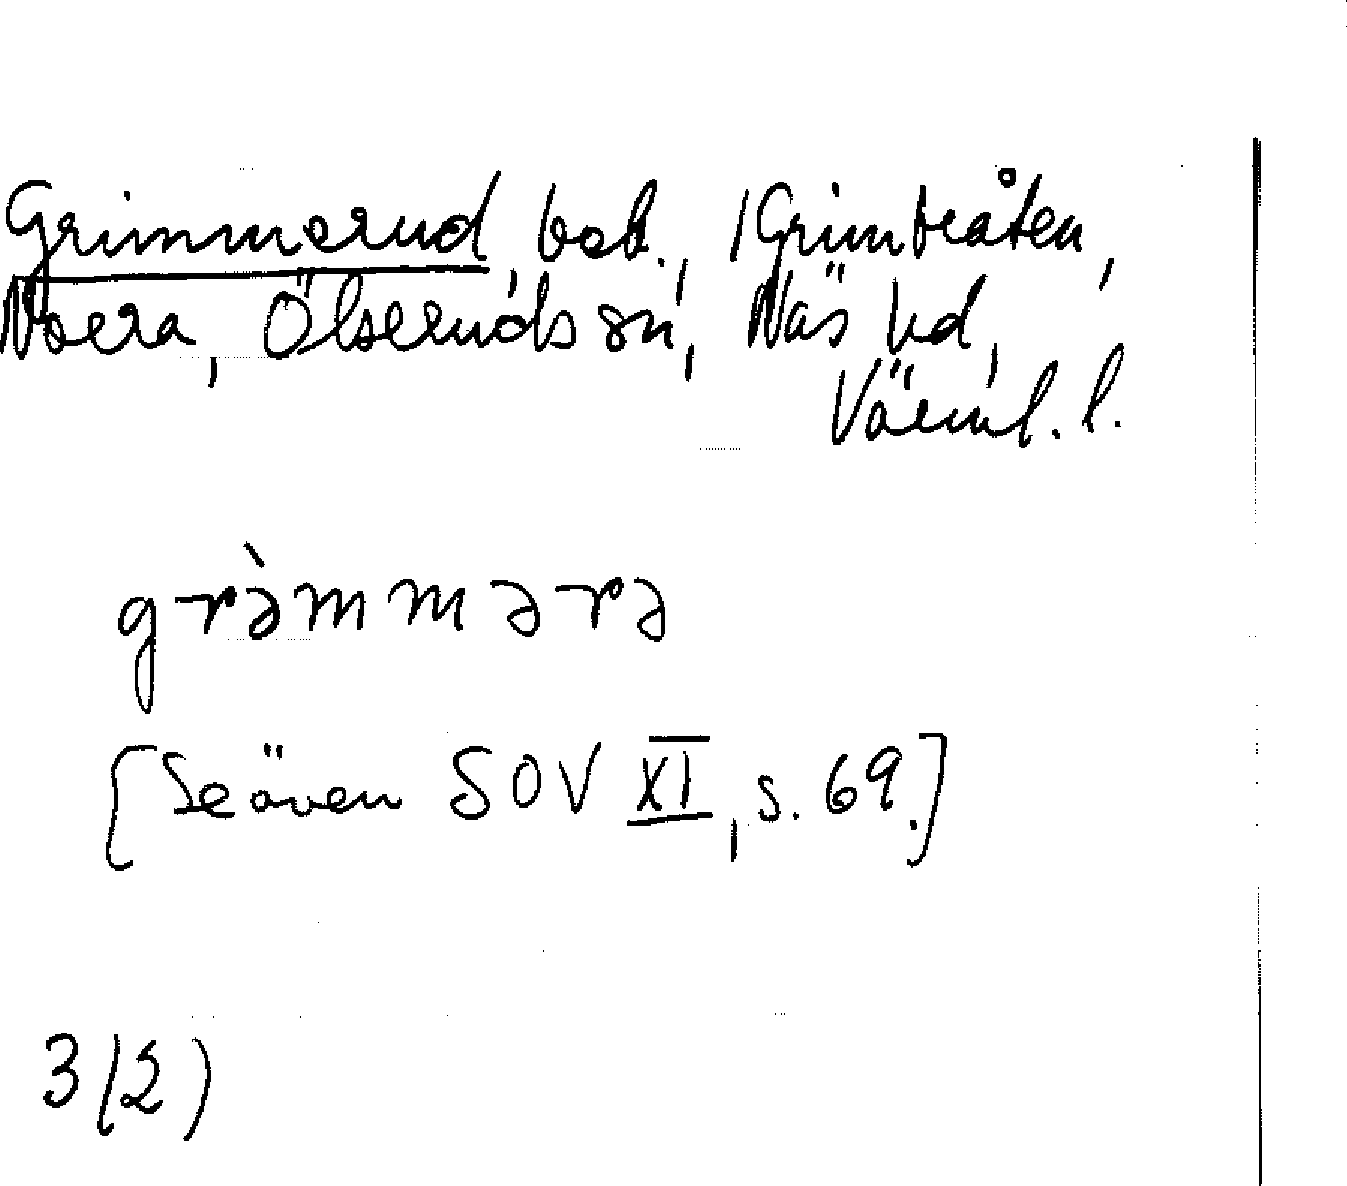 Grimmerud, beb., /Grimbråten,
Norra, Ölseruds sn, Näs hd,
Värml. l.
grə̀mmərə
[Se även SOV XI, s. 69.]
3(2)